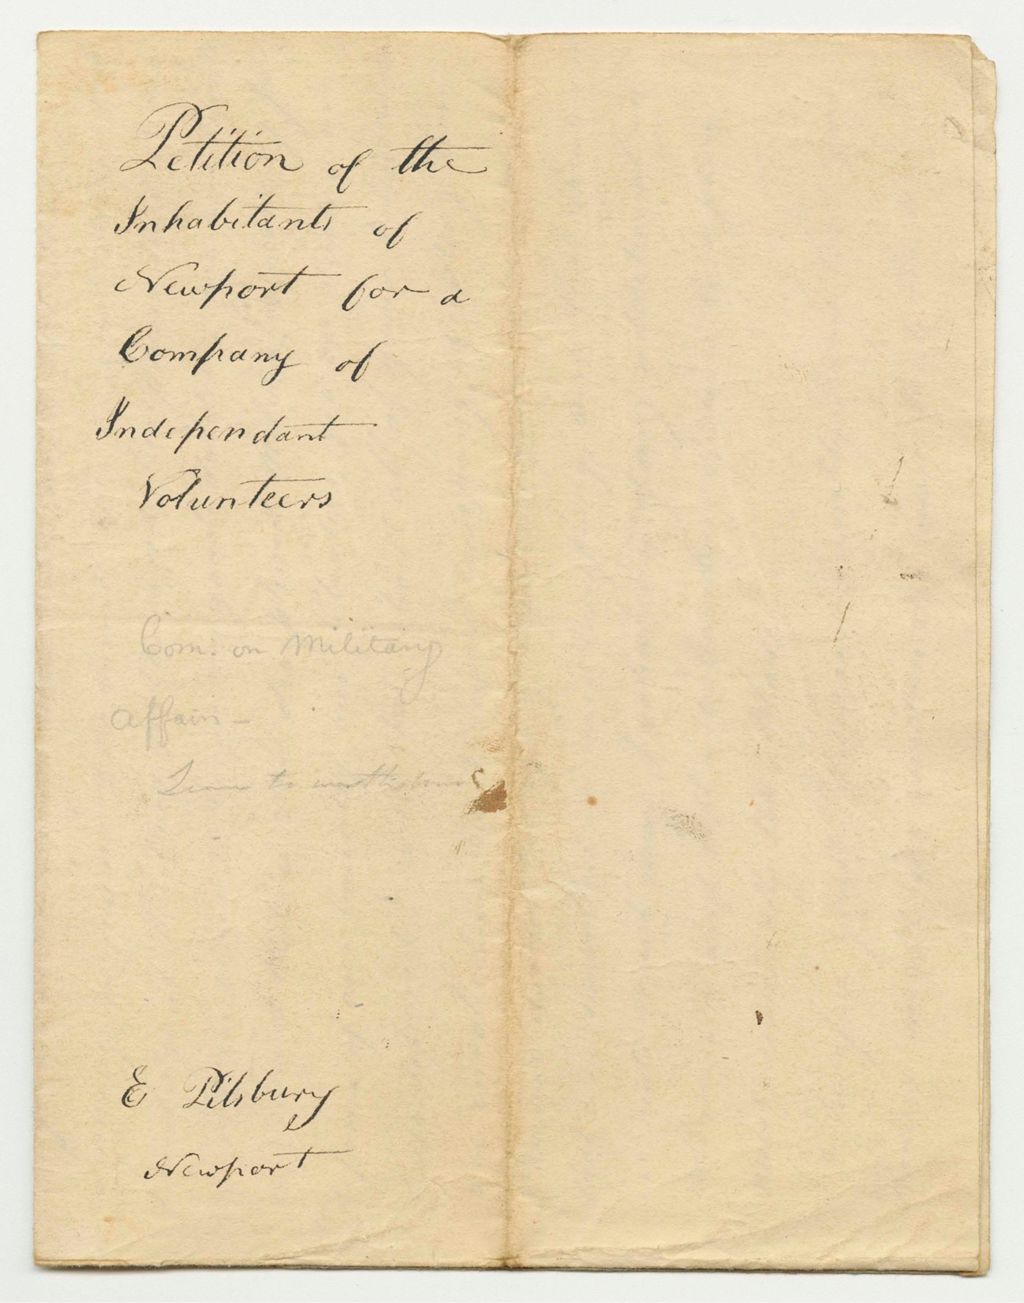 Petition of the
Inhabitants of
Newport for a
Company of
Independant
Volunteers
Com: on Military
Affairs -
to
E Pilsbury
Newport